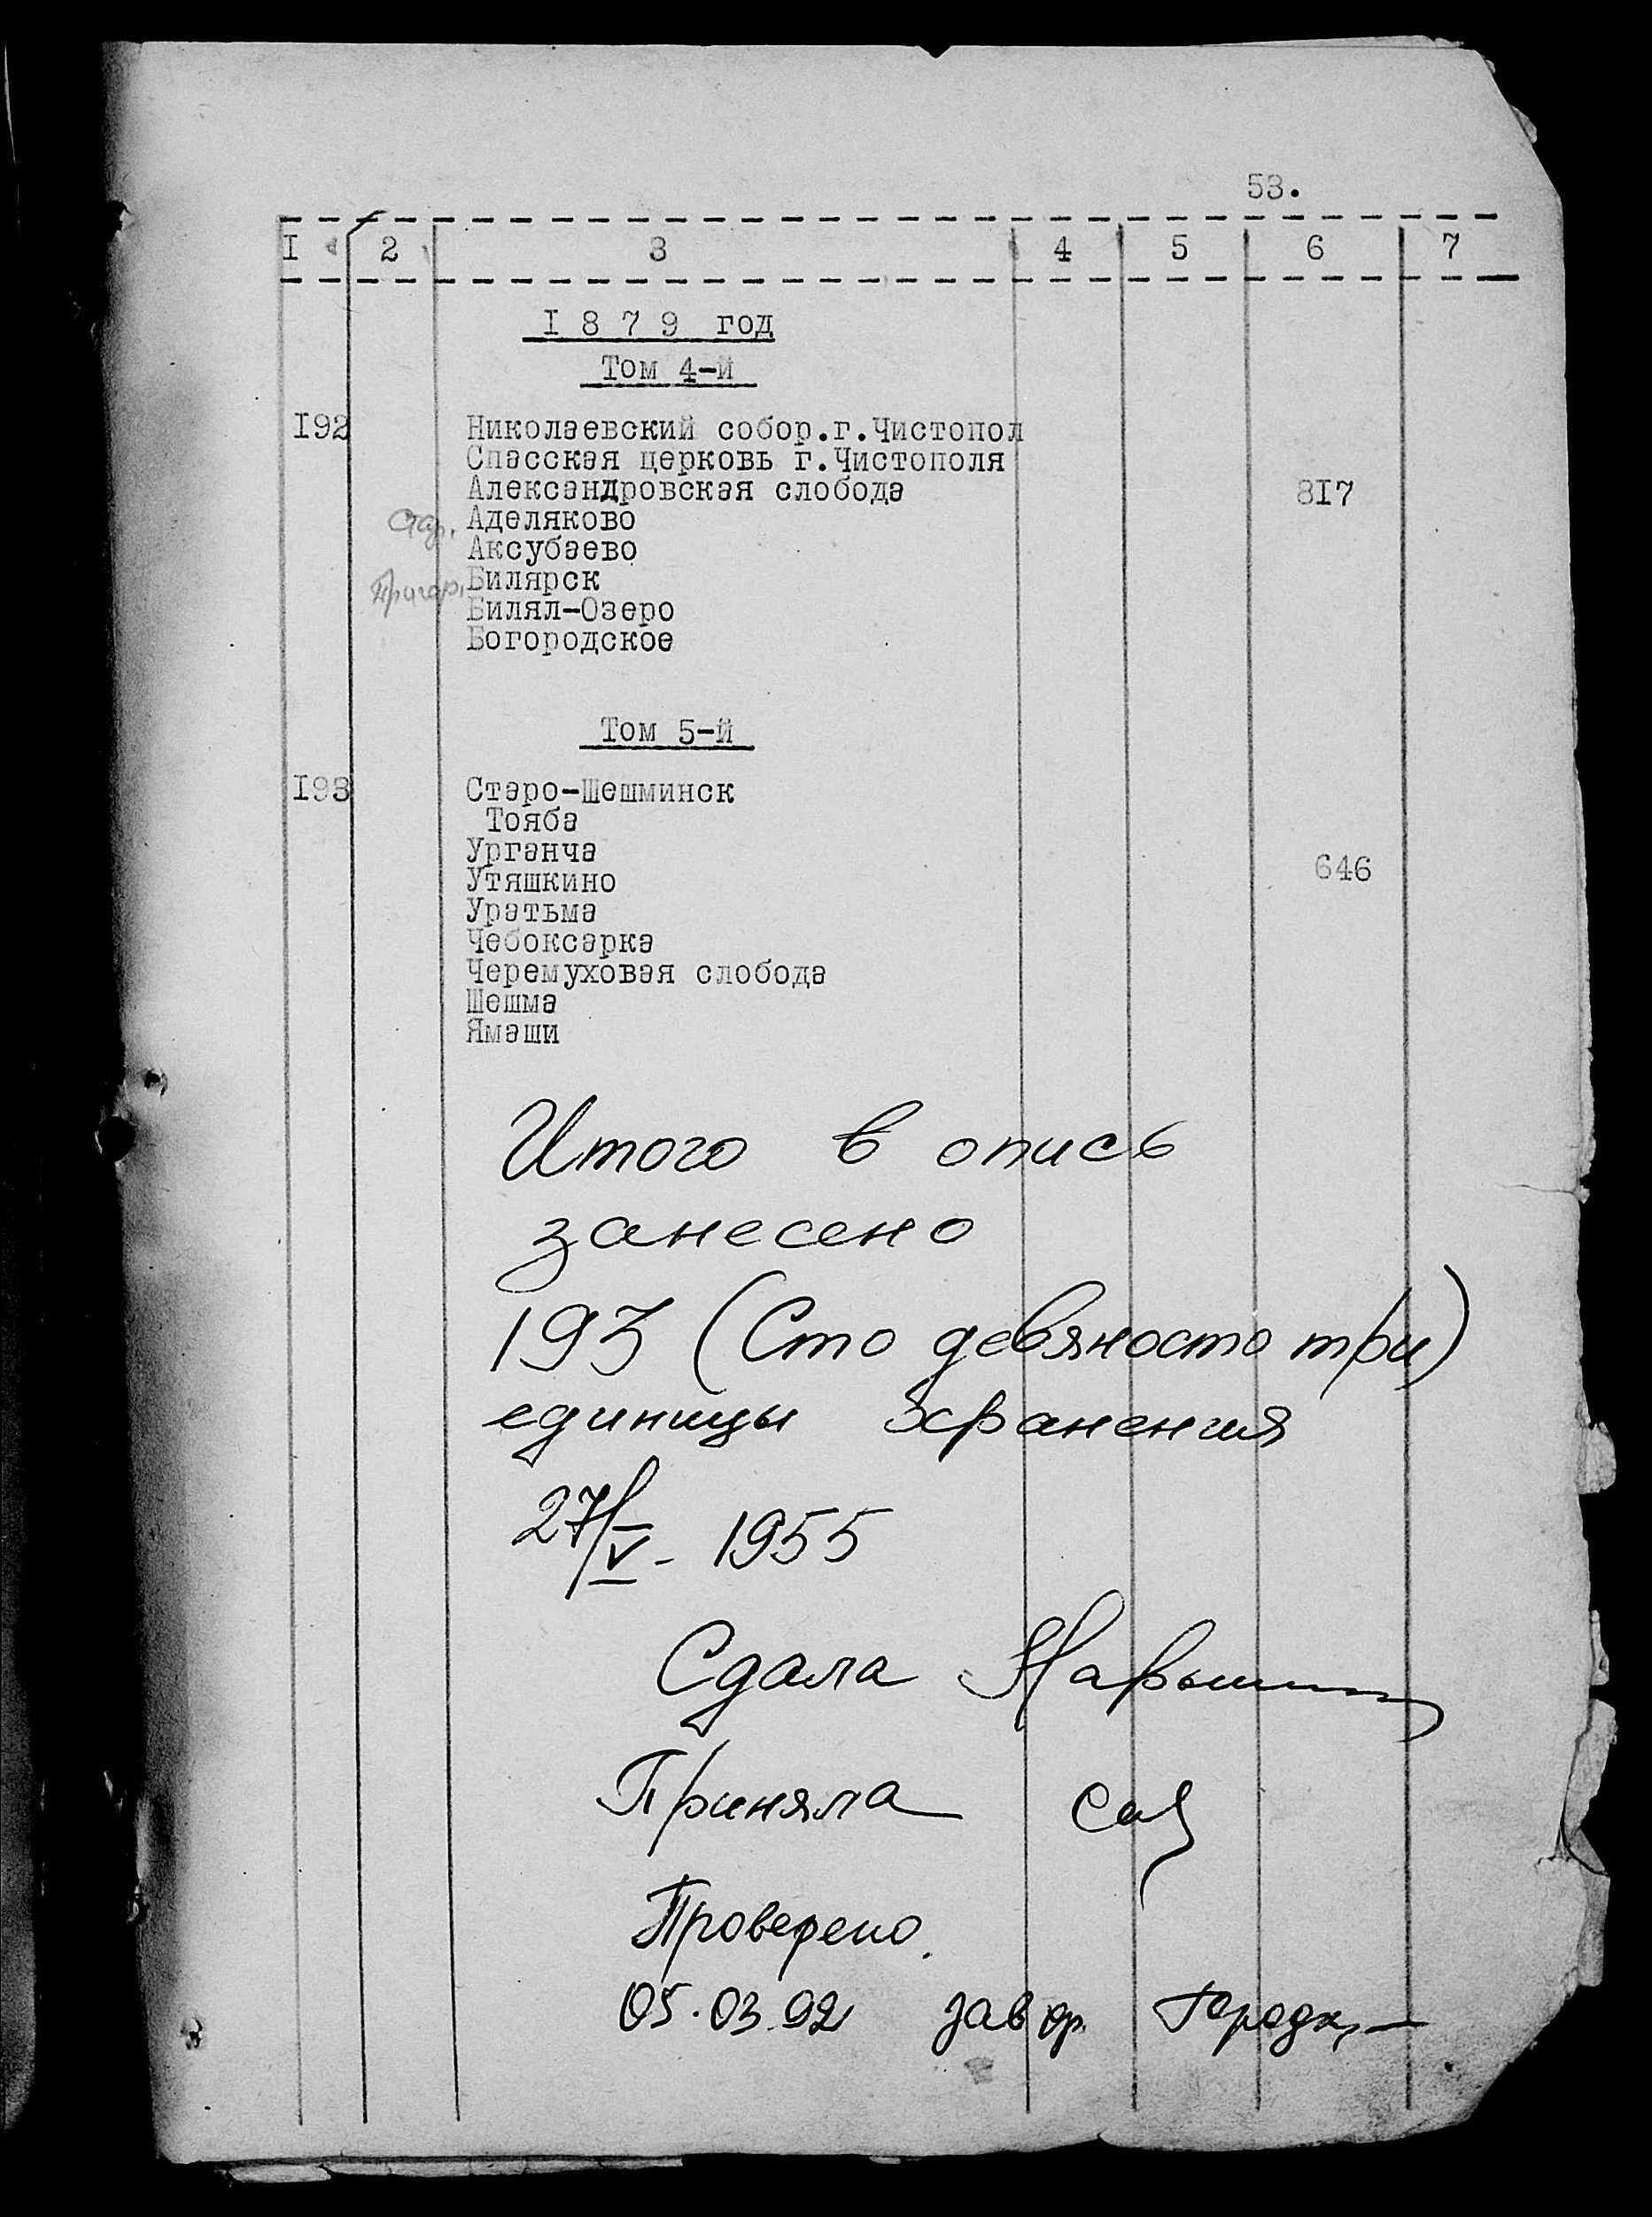 53.
I 2 3 4 5 6 7
I 8 7 9 год
Том 4-й
I92 Николаевский собор.г.Чистопол
Спасская церковь г.Чистополя
Александровская слобода 8I7
Стар. Аделяково
Аксубаево
Пригор. Билярск
Билял-Озеро
Богородское
Том 5-й
I93 Старо-Шешминск
Тояба
Урганча 646
Утяшкино
Уратьма
Чебоксарка
Черемуховая слобода
Шешма
Ямаши
Итого в опись
занесено
193 (Сто девяносто три)
единицы хранения
27/V - 1955
Сдала
Приняла
Проверено.
05.03.92 зав